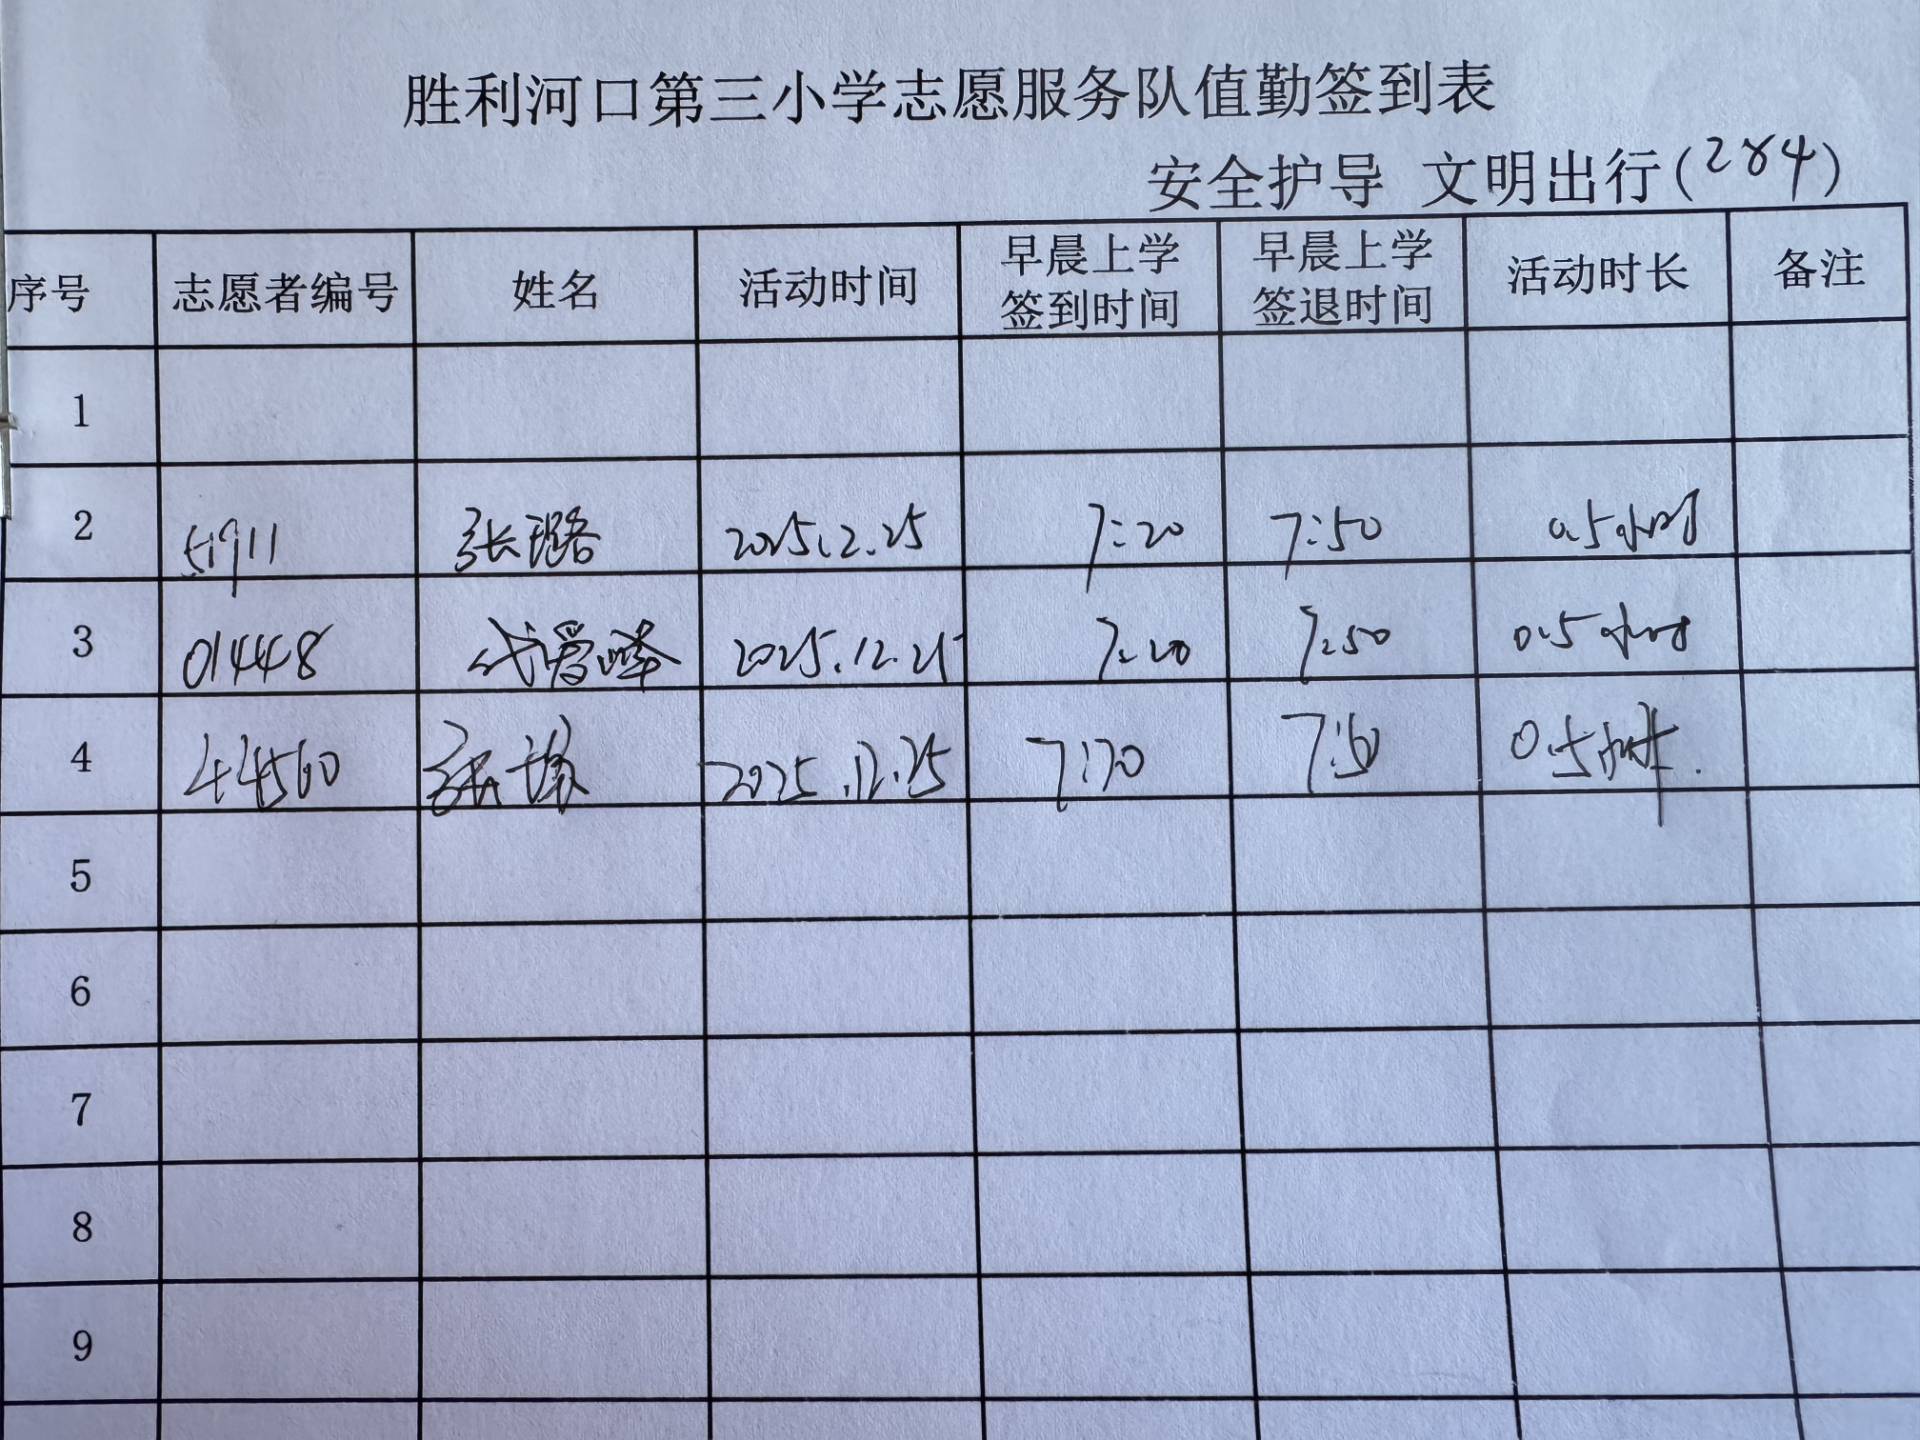 胜利河口第三小学志愿服务队值勤签到表
安全护导 文明出行(284)
序号 志愿者编号 姓名 活动时间 早晨上学签到时间 早晨上学签退时间 活动时长 备注
1
2 51911 张璐 2025.12.25 7:20 7:50 0.5小时
3 01448 战爱峰 2025.12.25 7:20 7:50 0.5小时
4 44560 张 2025.12.25 7:20 7:50 0.5小时.
5
6
7
8
9